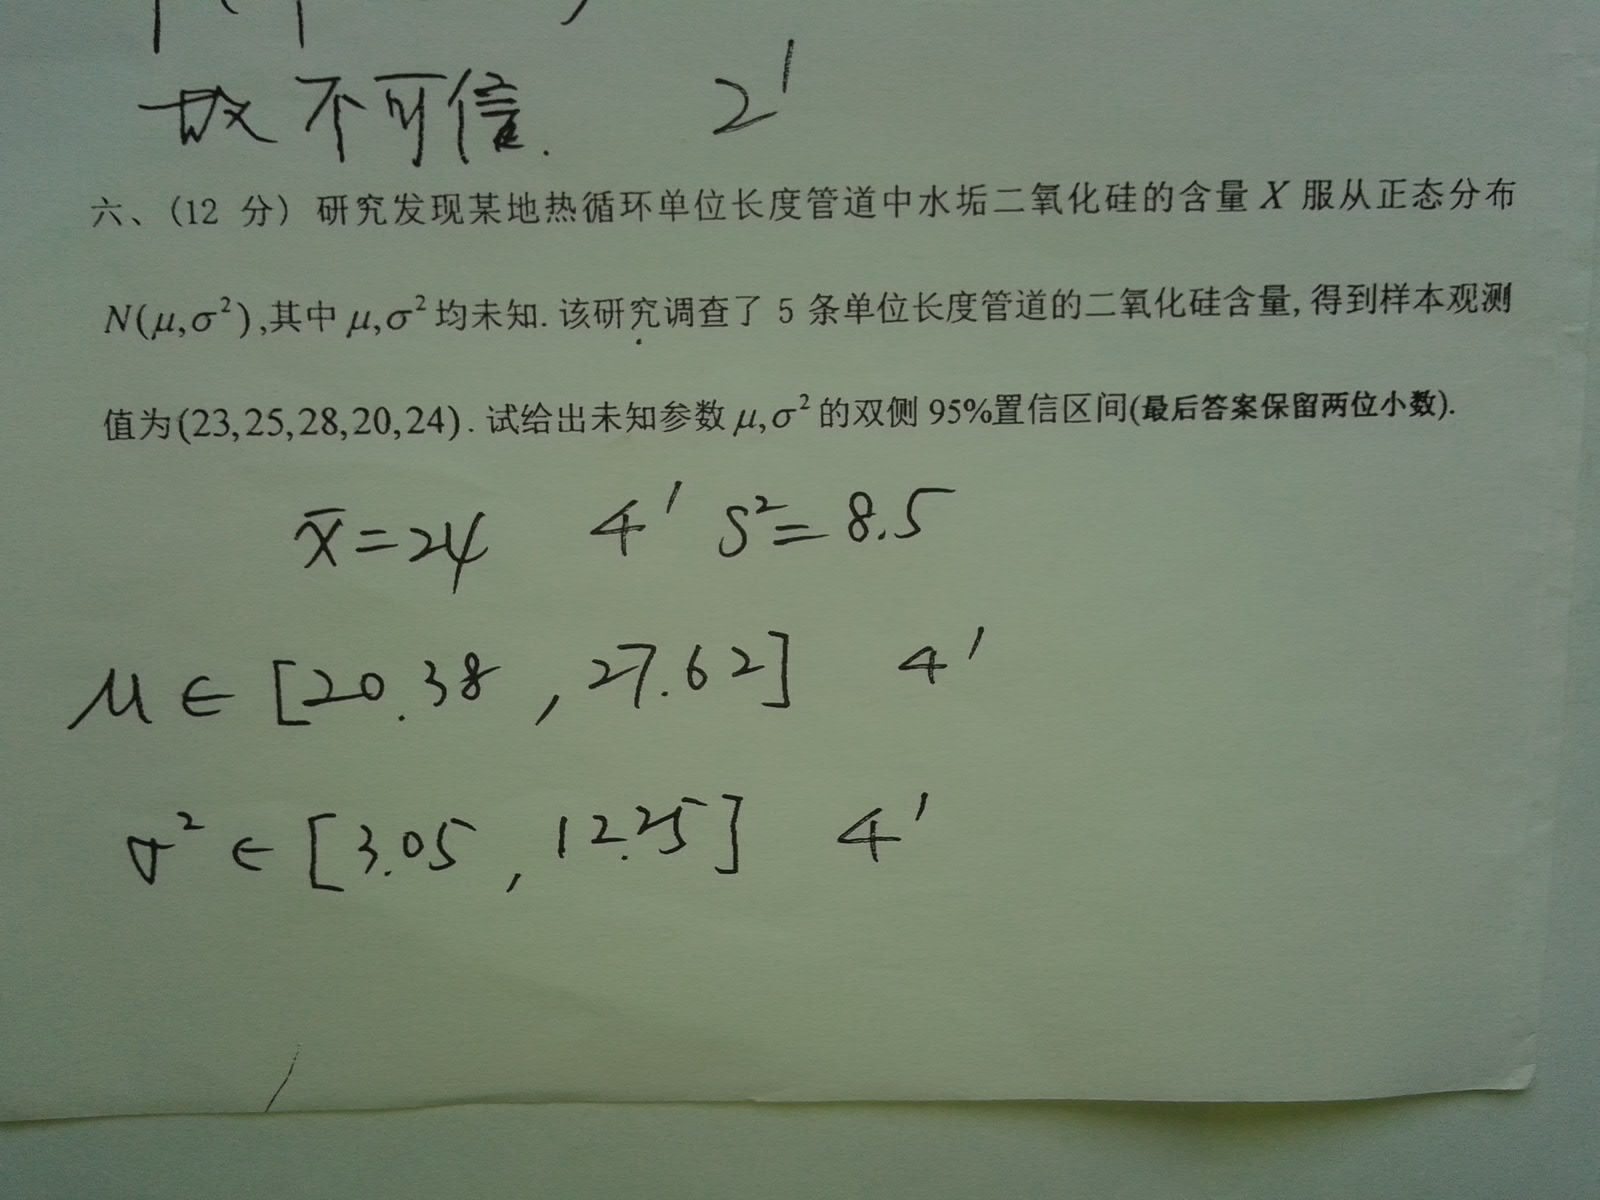 故不可信. 2'
六、(12 分) 研究发现某地热循环单位长度管道中水垢二氧化硅的含量 X 服从正态分布
N(μ,σ²),其中 μ,σ² 均未知. 该研究调查了 5 条单位长度管道的二氧化硅含量, 得到样本观测
值为(23,25,28,20,24). 试给出未知参数 μ,σ² 的双侧 95%置信区间(最后答案保留两位小数).
x̄=24 4' S²=8.5
μ∈[20.38 , 27.62] 4'
σ²∈[3.05 , 12.25] 4'